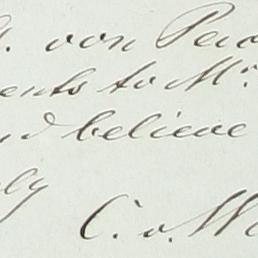 . von Pen
ents to Mr.
nd believe
ly
C. v. W